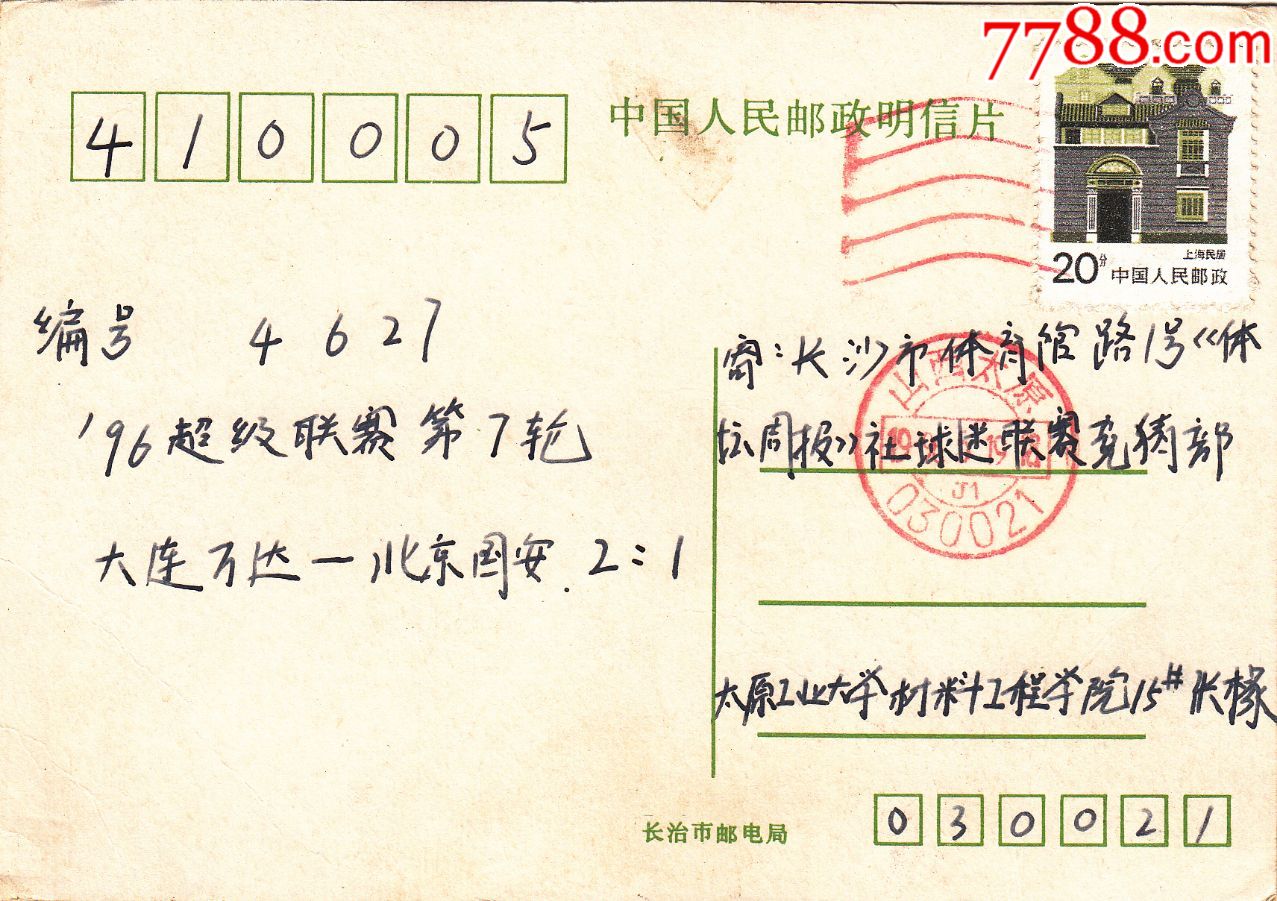 7788.com
410005
中国人民邮政明信片
上海民居
20分 中国人民邮政
编号 4627
'96超级联赛第7轮
大连万达—北京国安.2:1
寄:长沙市体育馆路1号《体
坛周报》社球迷联赛竞猜部
山西太原
030021
J1
太原工业大学材料工程学院15# 张椽
长治市邮电局
030021